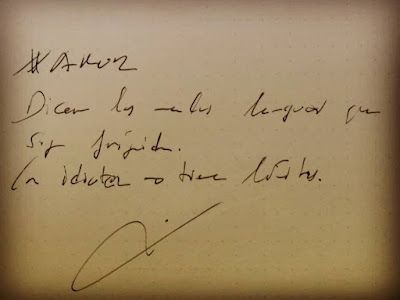 #AMOR
Dicen las malas lenguas que
soy frígida.
La idiotez no tiene límites.